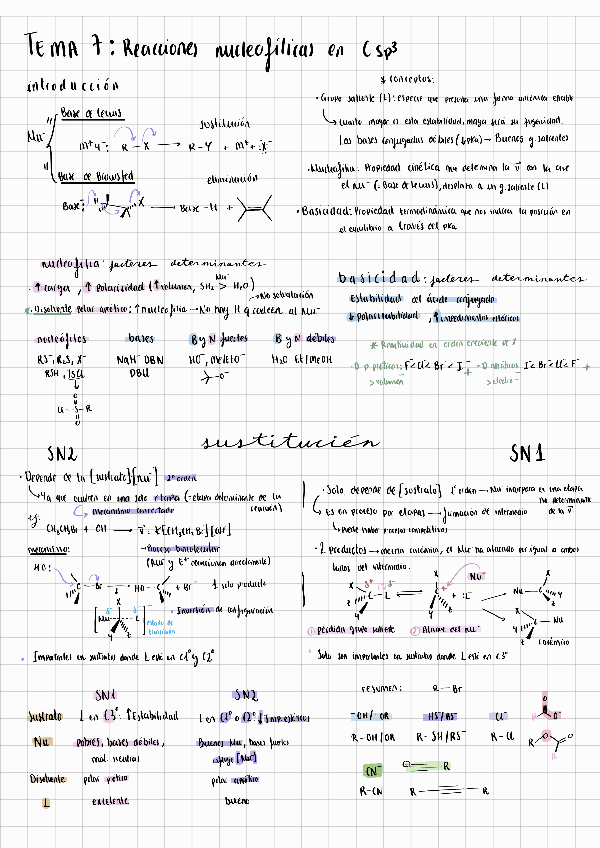 TEMA 7: Reacciones nucleofílicas en Csp³
introducción
Base de Lewis
sustitución
Nu⁻
M⁺Y⁻: R-X → R-Y + M⁺:X⁻
Base de Brönsted
eliminación
Base: H X → Base-H +
* conceptos:
· Grupo saliente (L): especie que presenta una forma aniónica estable
↳ cuanto mayor es esta estabilidad, mayor será su
Las bases conjugadas débiles (↓pka) - Buenos g. salientes
· Nucleofilia: Propiedad cinética que determina la v̄ con la que
el Nu⁻ (:Base de Lewis), desplaza a un g. saliente (L)
· Basicidad: Propiedad termodinámica que nos indica la posición en
el equilibrio a través del pka
nucleofilia: factores determinantes
· ↑ carga, ↑ Polaridad (↑volumen, SH₂ > H₂O)
Nu⁻
→ No solvatación
· Disolvente polar aprótico: ↑nucleofilia → No hay H q rodeen al Nu⁻
nucleófilos bases B y N fuertes B y N débiles
RS⁻, R₂S, X⁻ NaH DBN HO⁻, MeO, EtO⁻ H₂O Et/MeOH
RSH, TsCl DBU
Cl-S-R
O
O
basicidad: factores determinantes
Estabilidad del ácido conjugado
↓ Polarizabilidad, ↑ impedimentos estéricos
* Reactividad en orden creciente
· D próticos: F⁻<Cl⁻<Br⁻<I⁻
> volumen
· D apróticos: I⁻<Br⁻<Cl⁻<F⁻
> electro⁻
sustitución
SN2
· Depende de la [sustrato][Nu⁻] 2º orden
↳ Ya que ocurren en una sola etapa (=etapa determinante de la
reacción)
mecanismo concertado
ej:
CH₃CH₂Br + OH → v̄: K[CH₃CH₂Br][OH]
mecanismo:
→ Proceso bimolecular
(Nu⁻ y E⁺ reaccionan directamente)
HO:
C-Br → HO-C + Br⁻ 1 solo producto
[Nu L] → Inversión de configuración
Estado de transición
· Importantes en sustratos donde L esté en C1º y C2º
SN1
· Solo depende de [sustrato] 1º orden → Nu⁻ interviene en una etapa
no determinante
de la v̄
↳ Es en proceso por etapas → formación de intermedio
↳ Puede haber procesos competitivos
· 2 Productos → mezcla racémica, el Nu ha atacado por igual a ambos
lados del intermedio.
X C-L ⇌ + :L⁻ Nu⁻ Nu-C
C-Nu
racémico
① Pérdida grupo saliente ② Ataque del Nu⁻
Solo son importantes en sustratos donde L esté en C3º
SN1 SN2
Sustrato L en C3º: ↑Estabilidad L en C1º o C2º: ↓Imp. estéricos
Nu pobres, bases débiles, Buenos Nu⁻, bases fuertes
mol. neutras [Nu⁻]
Disolvente polar prótico polar aprótico
L excelente bueno
resumen: R-Br
⁻OH/⁻OR HS⁻/RS⁻ Cl⁻
R-OH/OR R-SH/RS⁻ R-Cl
CN⁻ ⊖≡R
R-CN R-≡-R